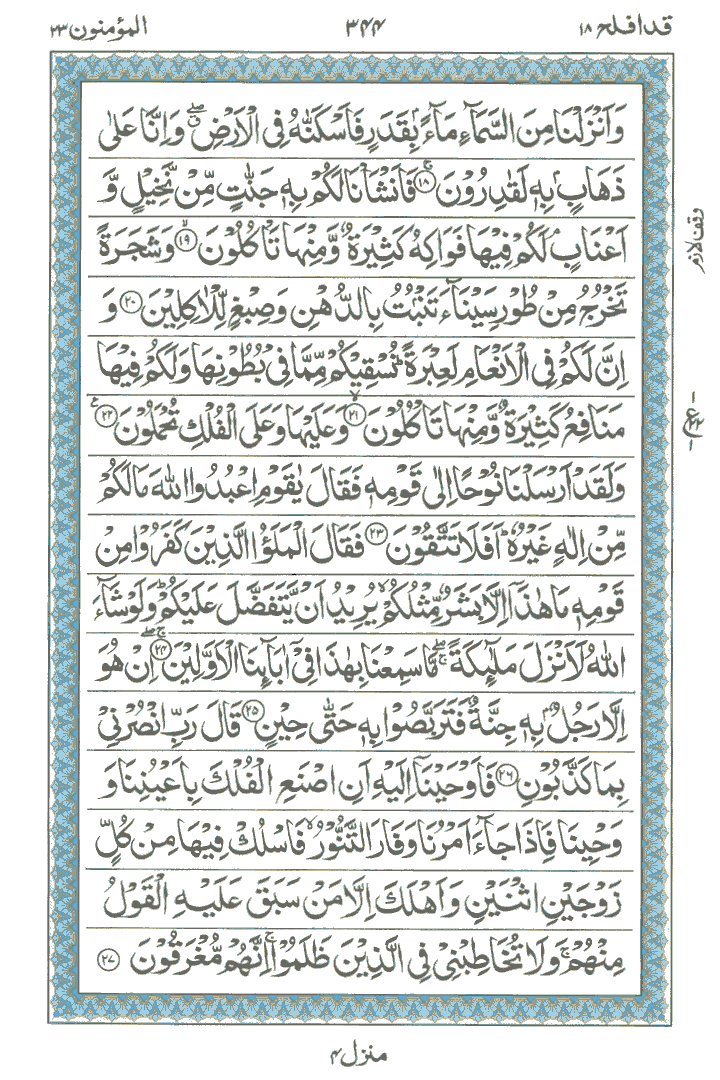 قد افلح ۱۸ ۳۴۴ المؤمنون ۲۳
وَ اَنْزَلْنَا مِنَ السَّمَآءِ مَآءًۢ بِقَدَرٍ فَاَسْكَنّٰهُ فِی الْاَرْضِ ۖۗ وَ اِنَّا عَلٰی
ذَهَابٍۭ بِهٖ لَقٰدِرُوْنَ ۚ﴿۱۸﴾ فَاَنْشَاْنَا لَكُمْ بِهٖ جَنّٰتٍ مِّنْ نَّخِیْلٍ وَّ
اَعْنَابٍ ۘ لَكُمْ فِیْهَا فَوَاكِهُ كَثِیْرَةٌ وَّ مِنْهَا تَاْكُلُوْنَ ۙ﴿۱۹﴾ وَ شَجَرَةً
وقف لازم
تَخْرُجُ مِنْ طُوْرِ سَیْنَآءَ تَنْۢبُتُ بِالدُّهْنِ وَ صِبْغٍ لِّلْاٰكِلِیْنَ ﴿۲۰﴾ وَ
اِنَّ لَكُمْ فِی الْاَنْعَامِ لَعِبْرَةً ؕ نُسْقِیْكُمْ مِّمَّا فِیْ بُطُوْنِهَا وَ لَكُمْ فِیْهَا
مَنَافِعُ كَثِیْرَةٌ وَّ مِنْهَا تَاْكُلُوْنَ ۙ﴿۲۱﴾ وَ عَلَیْهَا وَ عَلَی الْفُلْكِ تُحْمَلُوْنَ ﴿۲۲﴾ع
وَ لَقَدْ اَرْسَلْنَا نُوْحًا اِلٰی قَوْمِهٖ فَقَالَ یٰقَوْمِ اعْبُدُوا اللّٰهَ مَا لَكُمْ
مِّنْ اِلٰهٍ غَیْرُهٗ ؕ اَفَلَا تَتَّقُوْنَ ﴿۲۳﴾ فَقَالَ الْمَلَؤُا الَّذِیْنَ كَفَرُوْا مِنْ
قَوْمِهٖ مَا هٰذَاۤ اِلَّا بَشَرٌ مِّثْلُكُمْ ۙ یُرِیْدُ اَنْ یَّتَفَضَّلَ عَلَیْكُمْ ؕ وَ لَوْ شَآءَ
اللّٰهُ لَاَنْزَلَ مَلٰٓئِكَةً ۚۖ مَّا سَمِعْنَا بِهٰذَا فِیْۤ اٰبَآئِنَا الْاَوَّلِیْنَ ۚۖ﴿۲۴﴾ اِنْ هُوَ
اِلَّا رَجُلٌۢ بِهٖ جِنَّةٌ فَتَرَبَّصُوْا بِهٖ حَتّٰی حِیْنٍ ﴿۲۵﴾ قَالَ رَبِّ انْصُرْنِیْ
بِمَا كَذَّبُوْنِ ﴿۲۶﴾ فَاَوْحَیْنَاۤ اِلَیْهِ اَنِ اصْنَعِ الْفُلْكَ بِاَعْیُنِنَا وَ
وَحْیِنَا فَاِذَا جَآءَ اَمْرُنَا وَ فَارَ التَّنُّوْرُ ۙ فَاسْلُكْ فِیْهَا مِنْ كُلٍّ
زَوْجَیْنِ اثْنَیْنِ وَ اَهْلَكَ اِلَّا مَنْ سَبَقَ عَلَیْهِ الْقَوْلُ
مِنْهُمْ ۚ وَ لَا تُخَاطِبْنِیْ فِی الَّذِیْنَ ظَلَمُوْا ۚ اِنَّهُمْ مُّغْرَقُوْنَ ﴿۲۷﴾
منزل ۴